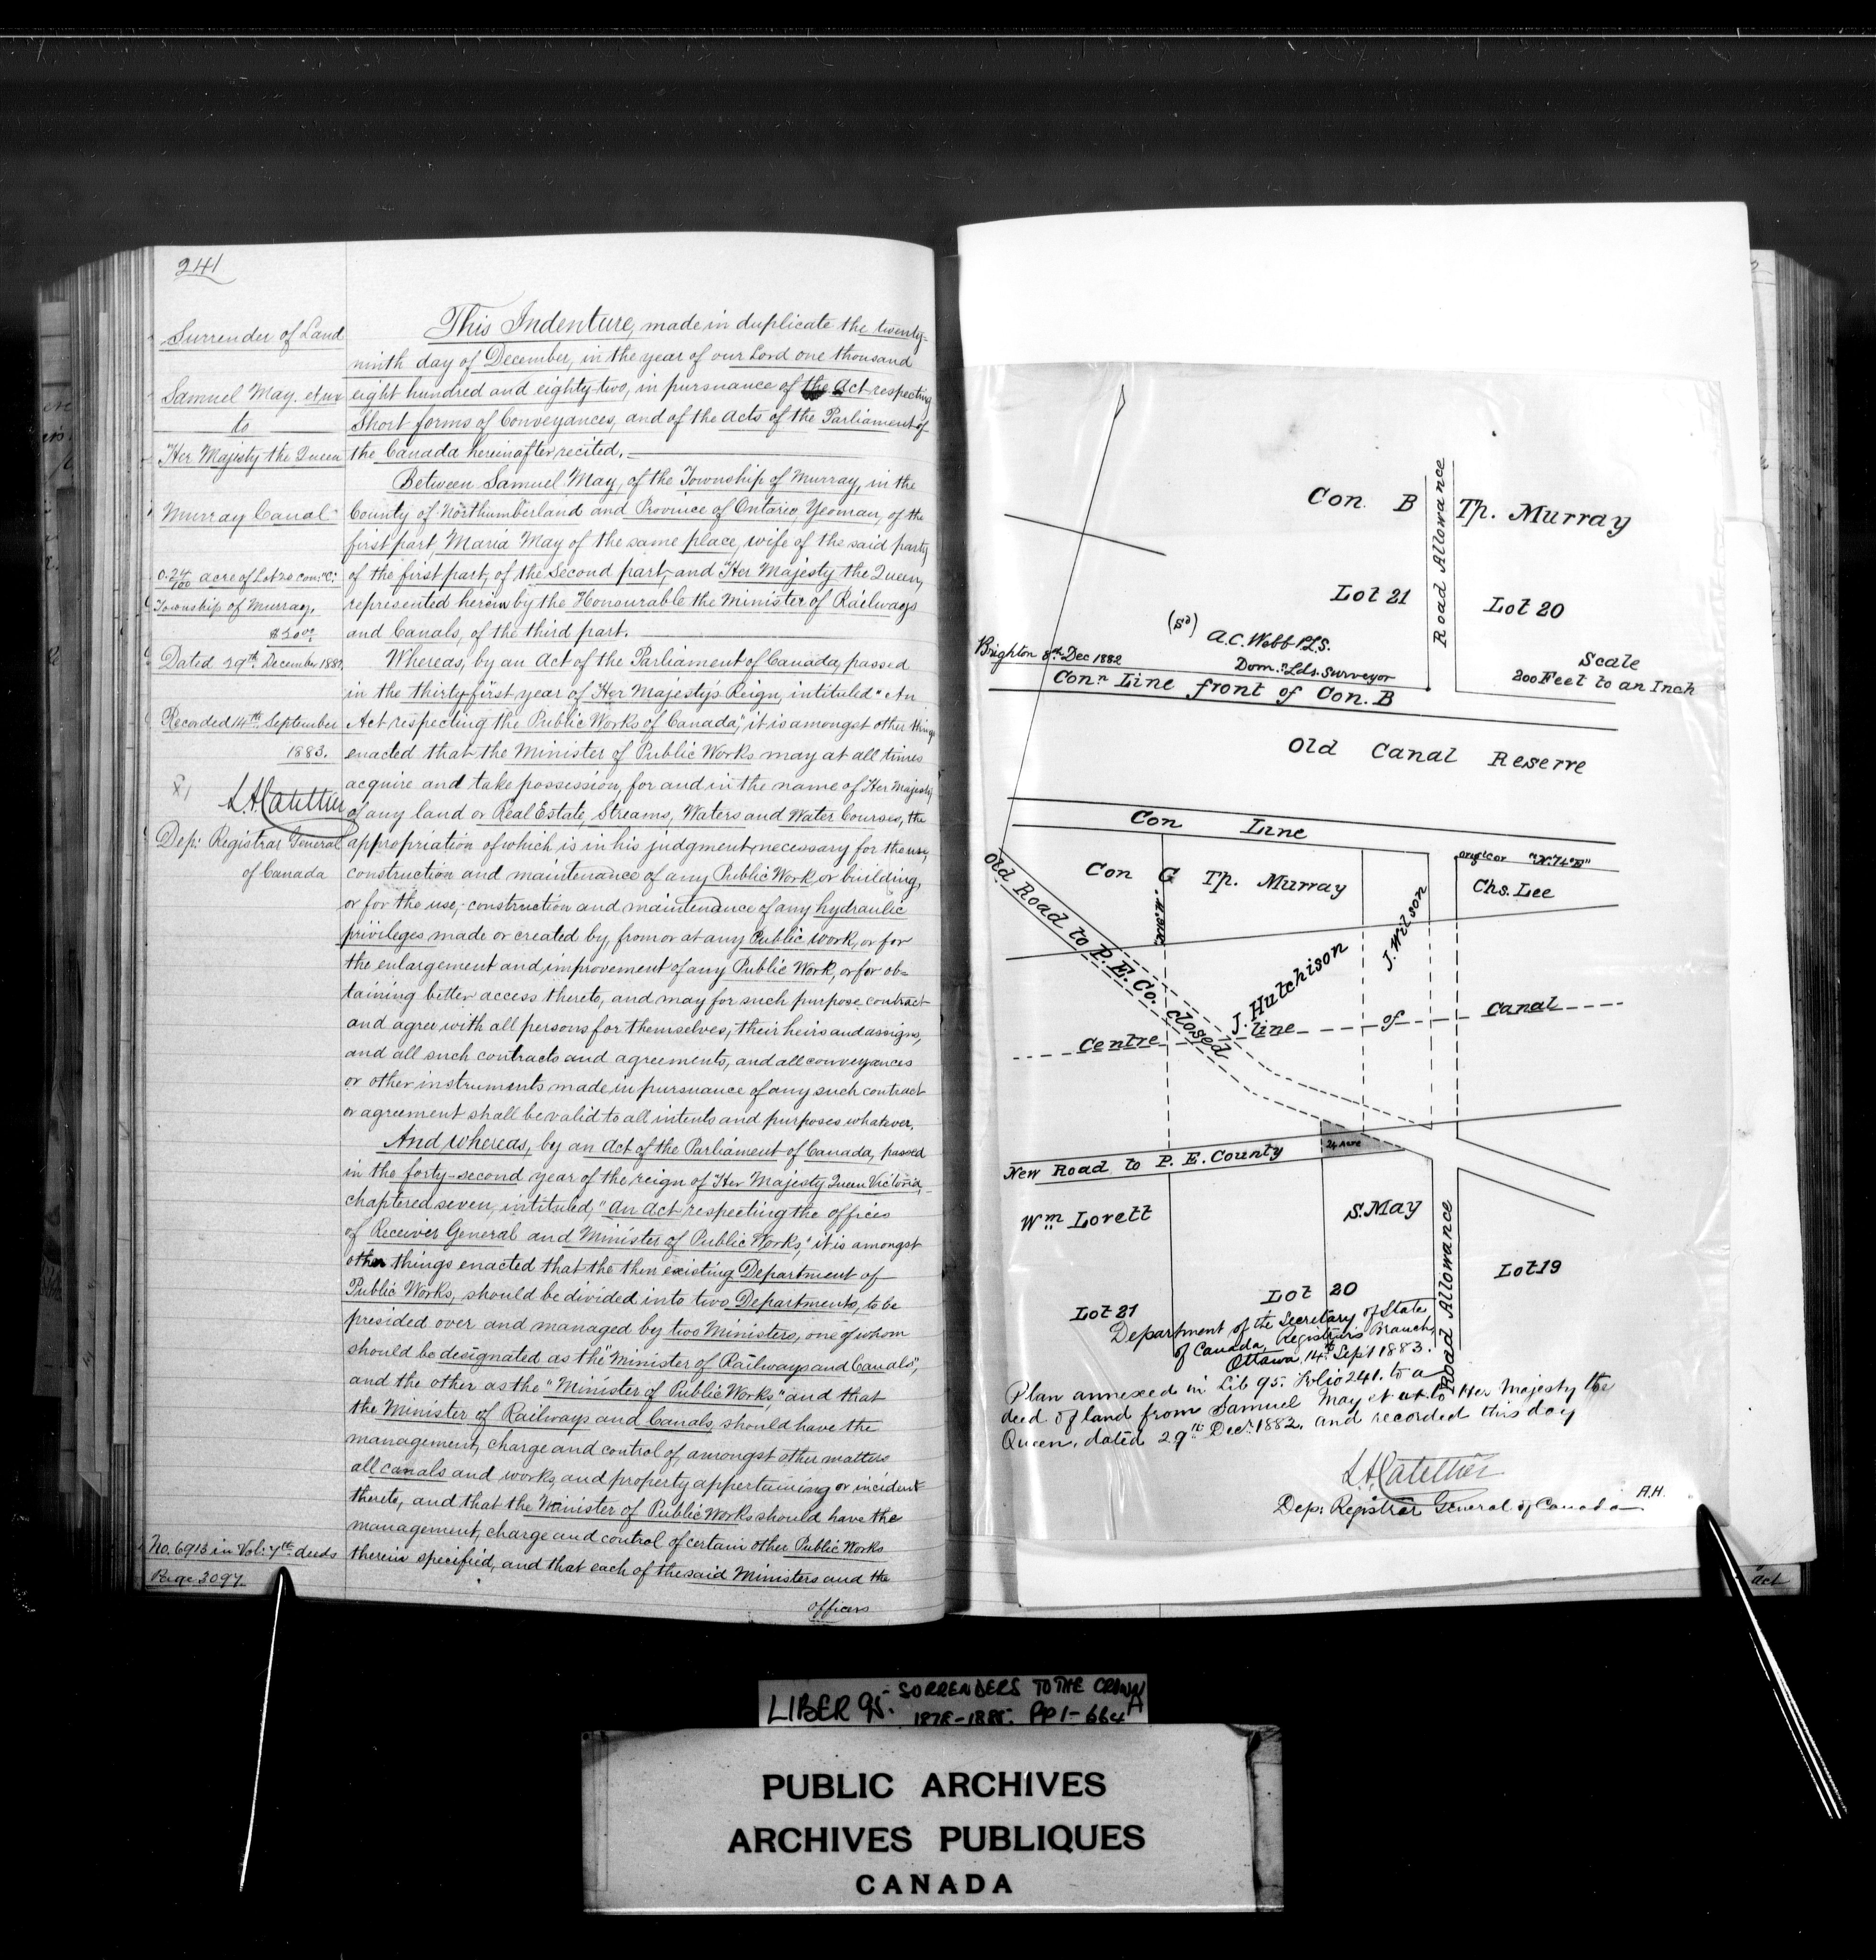 241
Surrender of Land
Samuel May. et ux
to
Her Majesty the Queen
Murray Canal
0.24/100 acre of Lot 20 con: "C."
Township of Murray,
Dated 29th December 1882
Recorded 14th September
1883.
L.A. Catellier
Dep: Registrar General
of Canada
No. 6913 in Vol: 7th deeds
Page 3097.
This Indenture, made in duplicate the twenty-
ninth day of December, in the year of our Lord one thousand
eight hundred and eighty two, in pursuance of the Act respecting
Short forms of Conveyances, and of the Acts of the Parliament of
the Canada hereinafter recited.
Between Samuel May, of the Township of Murray, in the
County of Northumberland and Province of Ontario, Yeoman, of the
first part, Maria May of the same place, wife of the said party
of the first part, of the Second part, and Her Majesty the Queen,
represented herein by the Honourable the Minister of Railways
and Canals, of the third part.
Whereas, by an Act of the Parliament of Canada, passed
in the thirty-first year of Her Majesty's Reign, intituled "An
Act respecting the Public Works of Canada," it is amongst other things
enacted that the Minister of Public Works may at all times
acquire and take possession, for and in the name of Her Majesty
of any land or Real Estate, Streams, Waters and Water Courses, the
appropriation of which is in his judgment necessary for the use,
construction and maintenance of any Public Work, or building,
or for the use, construction and maintenance of any hydraulic
privileges made or created by, from or at any Public Work, or for
the enlargement and improvement of any Public Work, or for ob-
taining better access thereto, and may for such purpose contract
and agree with all persons for themselves, their heirs and assigns,
and all such contracts and agreements, and all conveyances
or other instruments made in pursuance of any such contract
or agreement shall be valid to all intents and purposes whatever.
And Whereas, by an Act of the Parliament of Canada, passed
in the forty-second year of the reign of Her Majesty Queen Victoria,
chaptered seven, intituled, "An Act respecting the offices
of Receiver General and Minister of Public Works," it is amongst
other things enacted that the then existing Department of
Public Works, should be divided into two Departments, to be
presided over and managed by two Ministers, one of whom
should be designated as the "Minister of Railways and Canals",
and the other as the "Minister of Public Works," and that
the Minister of Railways and Canals, should have the
management, charge and control of, amongst other matters
all canals and works, and property appertaining or incident
thereto, and that the Minister of Public Works should have the
management, charge and control of certain other Public Works
therein specified, and that each of the said Ministers and the
officers
Con. B Tp. Murray
Road Allowance
Lot 21
Lot 20
(Sd) A.C. Webb P.L.S.
Dom. Lds. Surveyor
Brighton 8th Dec 1882
Scale
200 Feet to an Inch
Conn Line front of Con. B
Old Canal Reserve
Con Line
Con C Tp. Murray
Chs. Lee
Old Road to P. E. Co. closed
J. Hutchison
J. Wilson
Centre line of Canal
24 Acre
New Road to P. E. County
Wm Lovett
S. May
Road Allowance
Lot 21
Lot 20
Lot 19
Department of the Secretary of State
of Canada, Registrar's Branch,
Ottawa, 14th Sept 1883.
Plan annexed in Lib 95. Folio 241. to a
deed of land from Samuel May et ux to Her Majesty the
Queen, dated 29th Decr 1882. and recorded this day
L.A. Catellier
Dep: Registrar General of Canada
A.H.
Act
LIBER 95. SURRENDERS TO THE CROWN
1878-1885. PP 1-664
PUBLIC ARCHIVES
ARCHIVES PUBLIQUES
CANADA